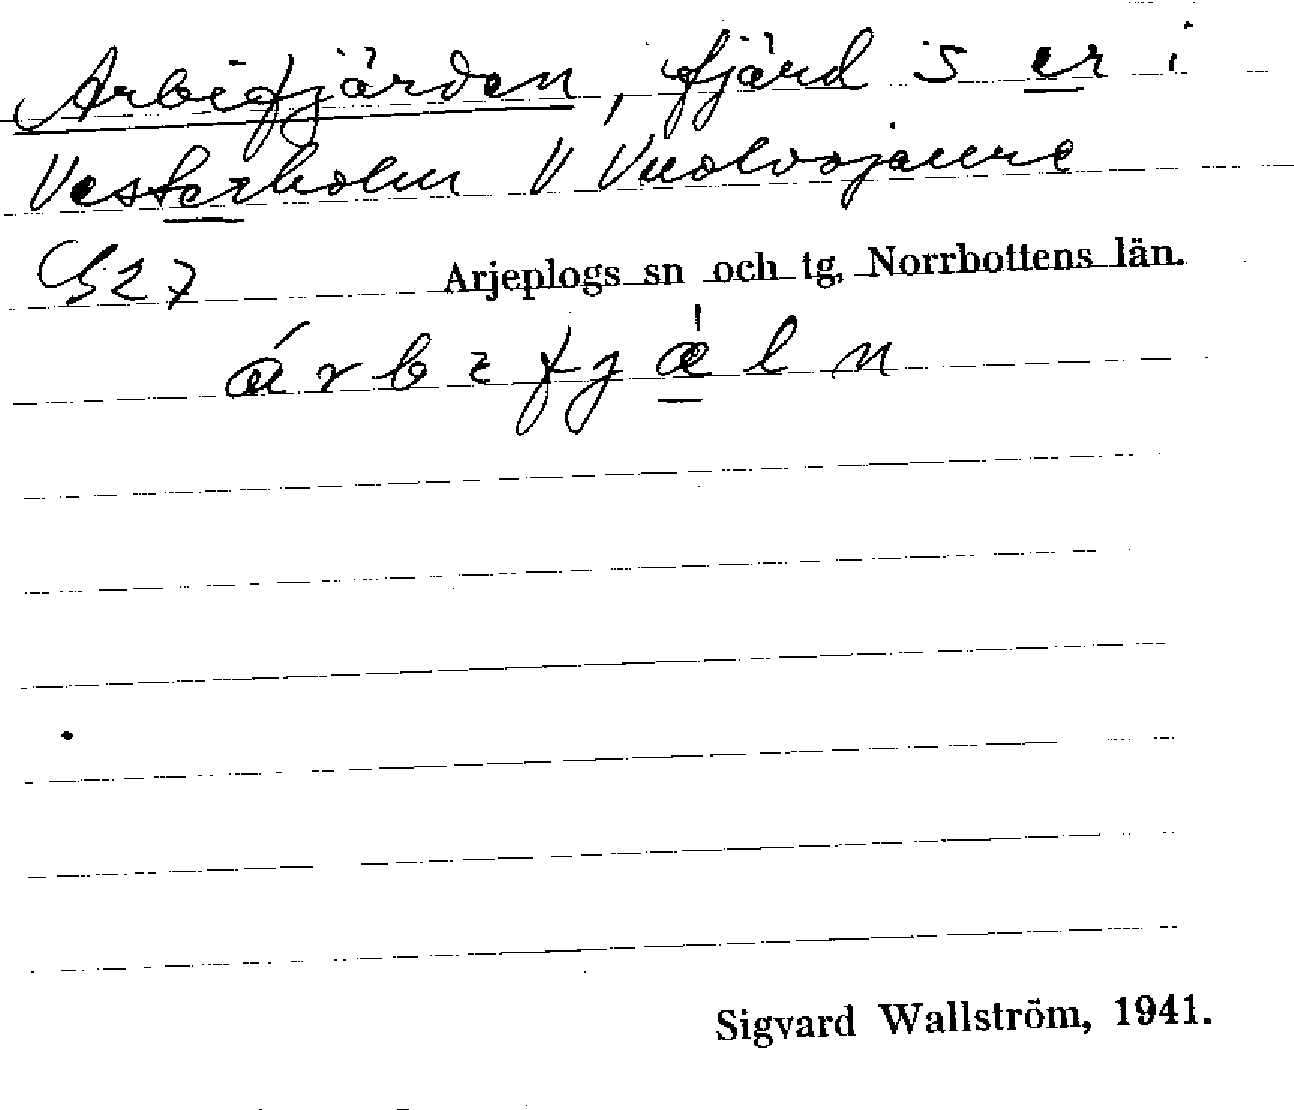 Arbefjärden, fjärd S er i
Vesterholm V Vuolvojaure
G27 Arjeplogs sn och tg, Norrbottens län.
Sigvard Wallström, 1941.